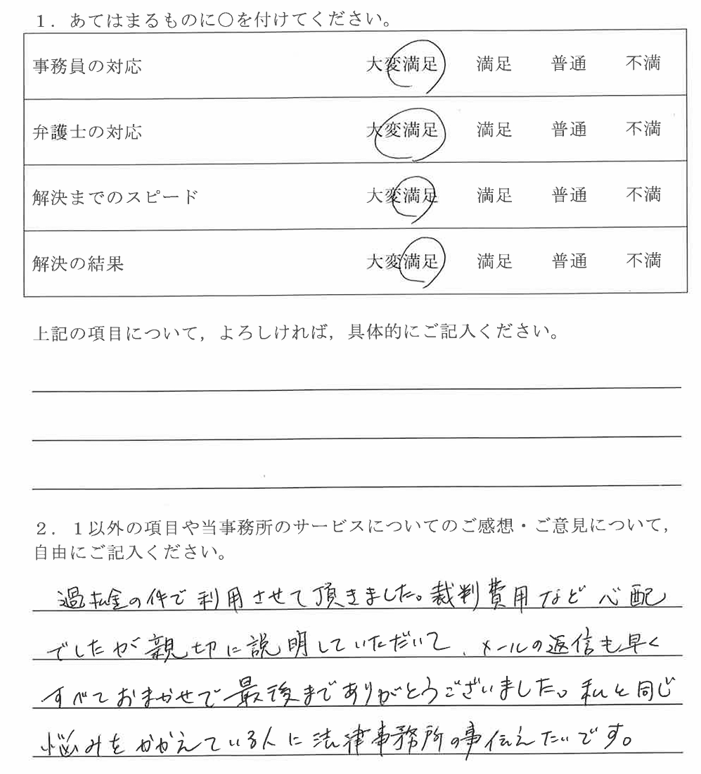 1．あてはまるものに○を付けてください。
事務員の対応 大変満足 満足 普通 不満
弁護士の対応 大変満足 満足 普通 不満
解決までのスピード 大変満足 満足 普通 不満
解決の結果 大変満足 満足 普通 不満
上記の項目について，よろしければ，具体的にご記入ください。
2．1以外の項目や当事務所のサービスについてのご感想・ご意見について，
自由にご記入ください。
過払金の件で利用させて頂きました。裁判費用など心配
でしたが親切に説明していただいて、メールの返信も早く
すべておまかせで最後までありがとうございました。私と同じ
悩みをかかえている人に法律事務所の事伝えたいです。